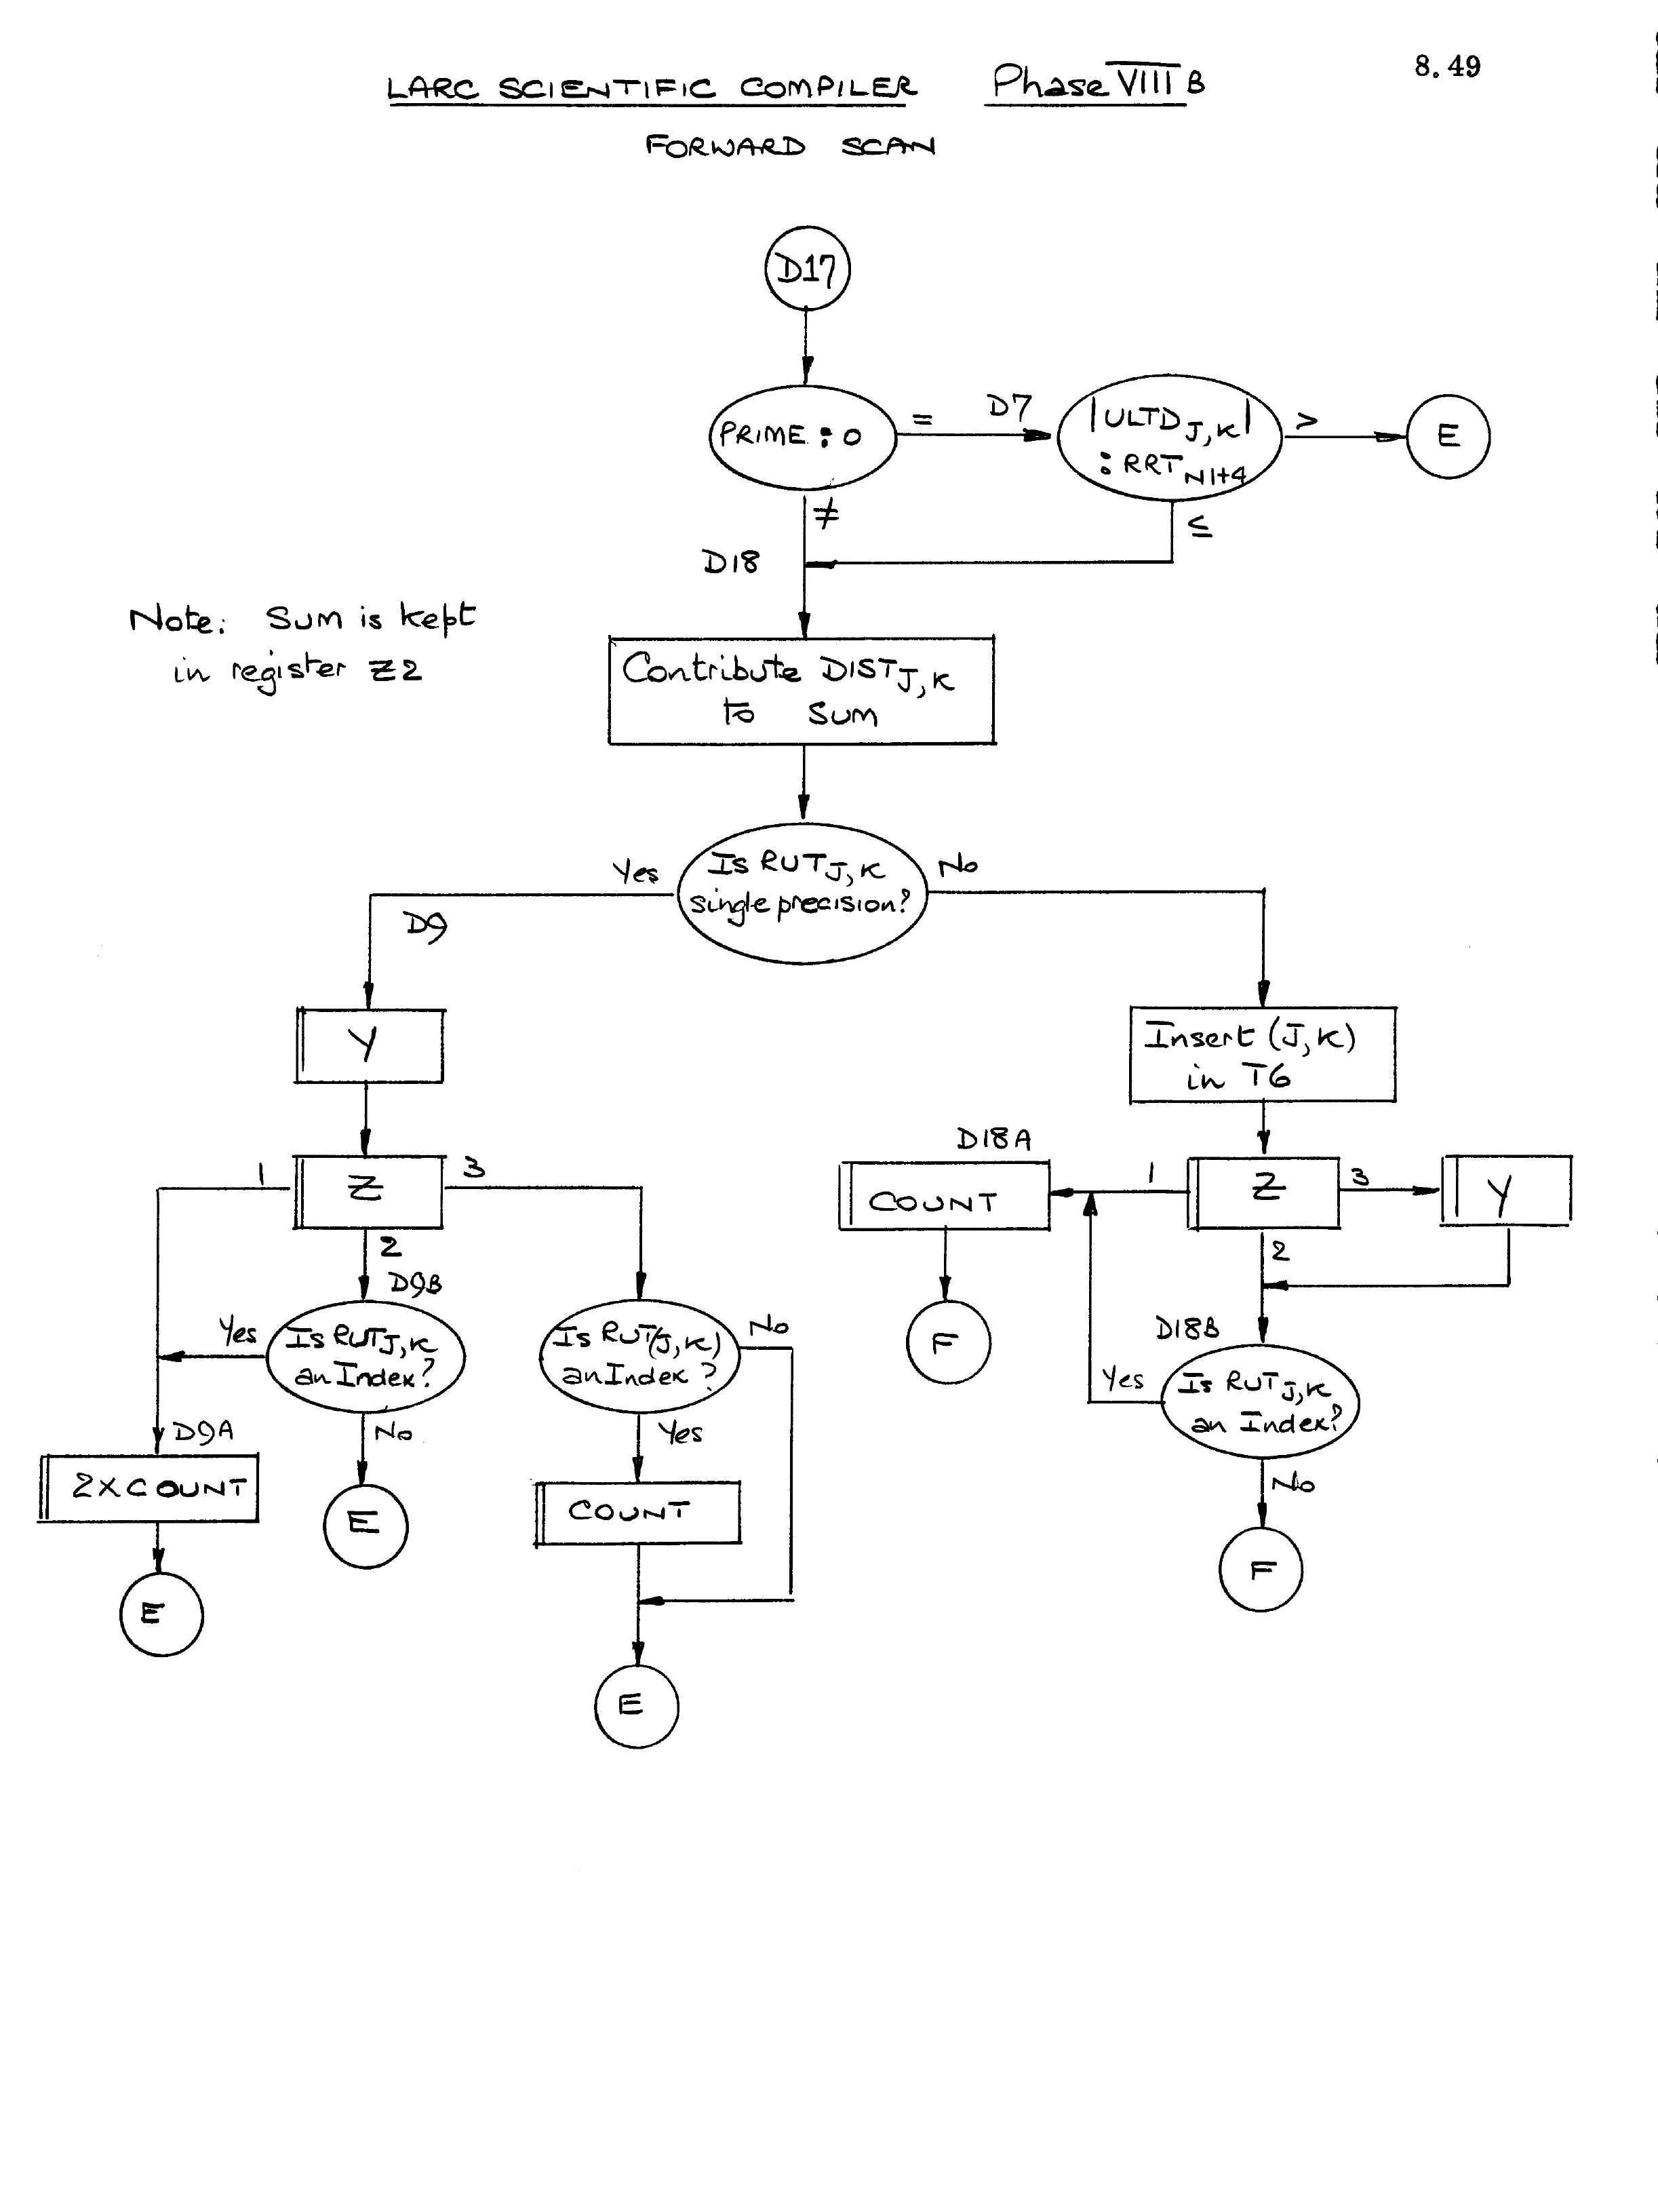 8.49
LARC SCIENTIFIC COMPILER Phase VIII B
FORWARD SCAN
D17
PRIME : 0
=
D7
|ULTD J,K|
: RRT N1+4
>
E
≠
≤
D18
Note: Sum is kept
in register Z2
Contribute DIST J,K
to Sum
Is RUT J,K
single precision?
Yes
No
D9
Y
Insert (J,K)
in T6
1
Z
3
2
D9B
D18A
COUNT
1
Z
3
Y
2
F
D18B
Yes
Is RUT J,K
an Index?
No
D9A
2XCOUNT
E
E
Is RUT(J,K)
an Index?
No
Yes
COUNT
E
Yes
Is RUT J,K
an Index?
No
F